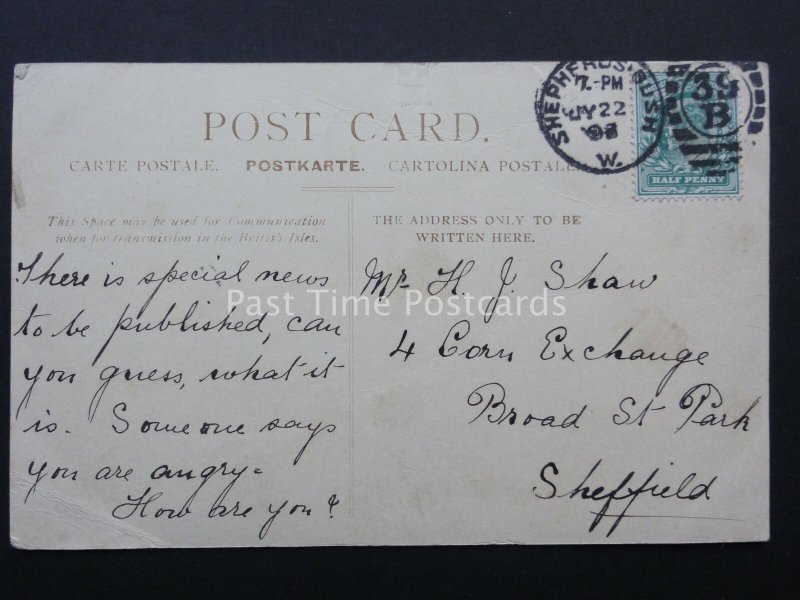 POST CARD.
CARTE POSTALE. POSTKARTE. CARTOLINA POSTALE.
This Space may be used for Communication
when for transmission in the British Isles.
There is special news
to be published, can
you guess, what it
is. Someone says
you are angry=
How are you?
THE ADDRESS ONLY TO BE
WRITTEN HERE.
Mr. H. J. Shaw
4 Corn Exchange
Broad St Park
Sheffield
SHEPHERDS BUSH
7-PM
JY 22
W.
39
B
HALF PENNY
Past Time Postcards